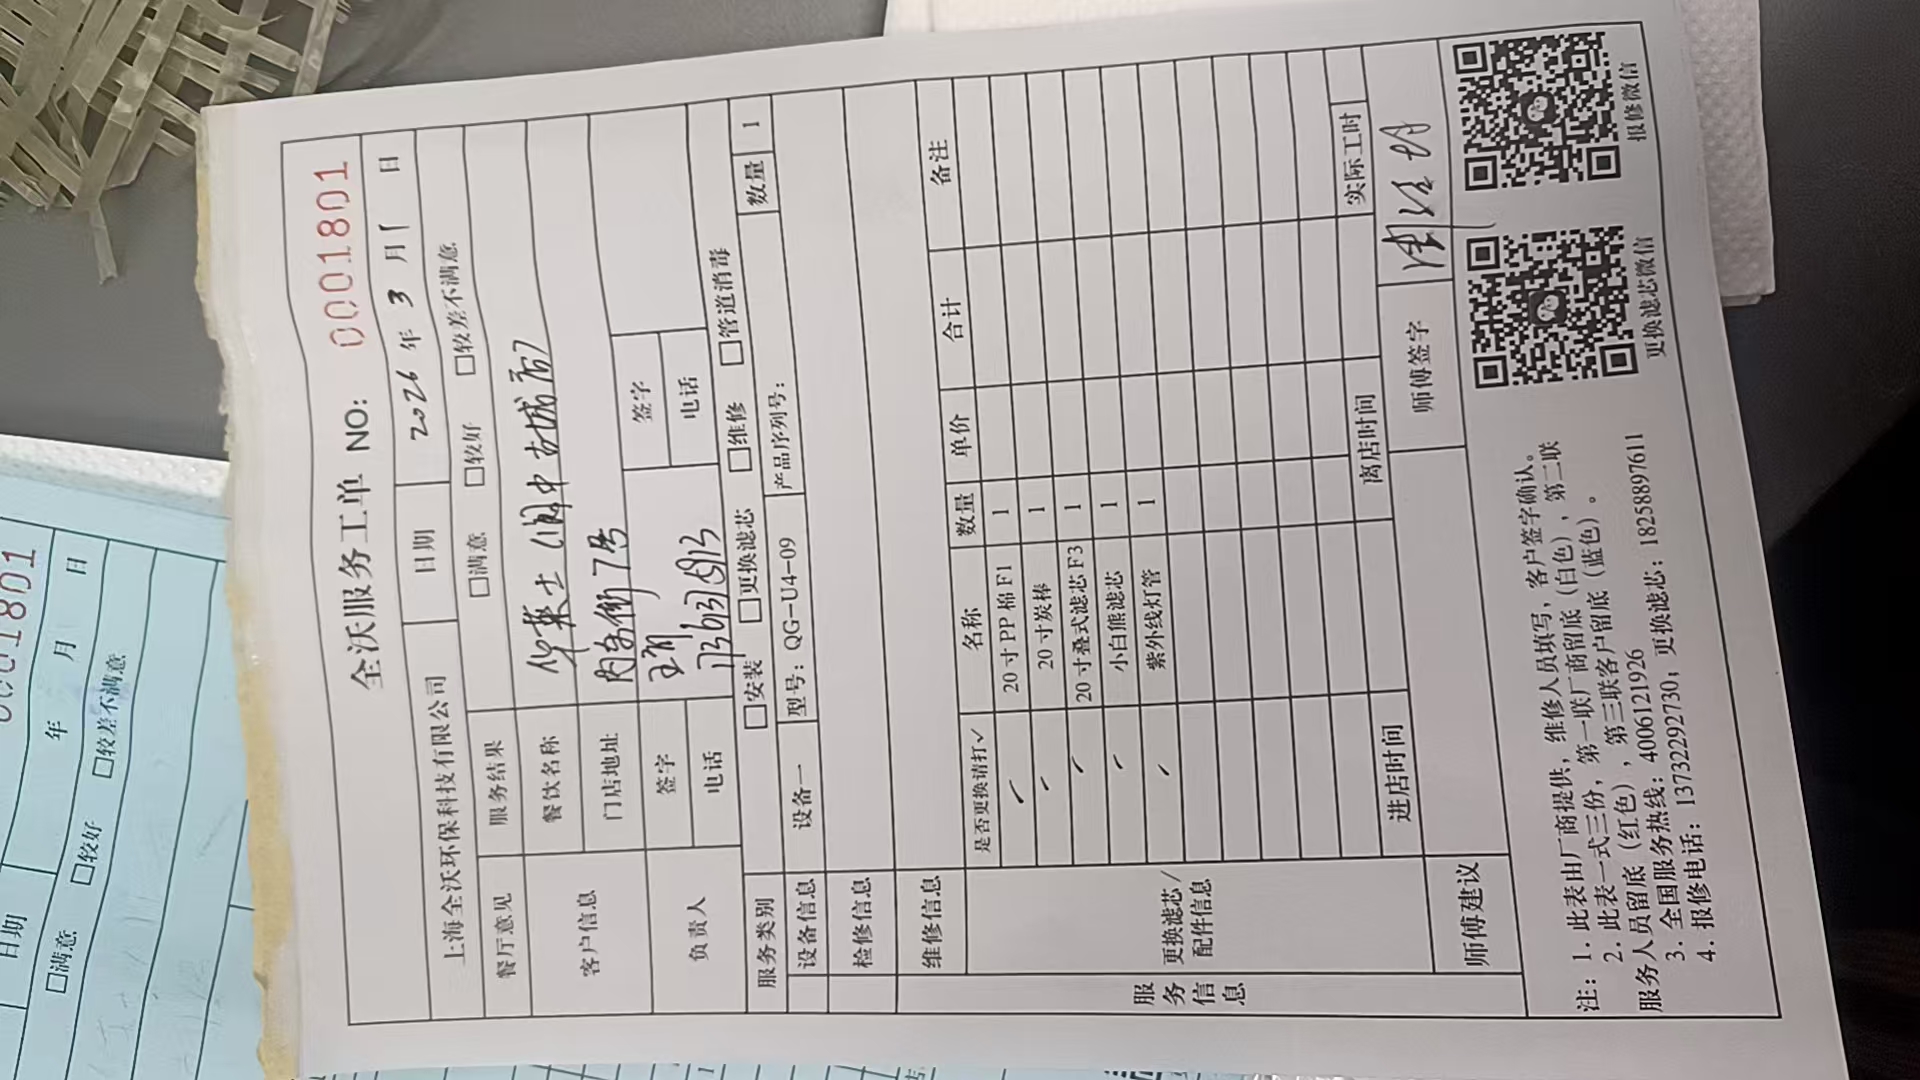 全沃服务工单 NO: 0001801
上海全沃环保科技有限公司 日期 2026年3月1日
餐厅意见 服务结果 □满意 □较好 □较差不满意
客户信息 餐饮名称 华莱士(阆中古城店)
门店地址 内东街7号
负责人 签字 签字
电话 电话
服务类别 □安装 □更换滤芯 □维修 □管道消毒
设备信息 设备一 型号: QG-U4-09 产品序列号: 数量 1
检修信息
维修信息
服务信息
更换滤芯/配件信息
是否更换请打✓ 名称 数量 单价 合计 备注
✓ 20寸PP棉F1 1
✓ 20寸炭棒 1
✓ 20寸叠式滤芯F3 1
✓ 小白熊滤芯 1
✓ 紫外线灯管 1
进店时间 离店时间 实际工时
师傅建议 师傅签字
注: 1. 此表由厂商提供，维修人员填写，客户签字确认。
2. 此表一式三份，第一联厂商留底（白色），第二联
服务人员留底（红色），第三联客户留底（蓝色）。
3. 全国服务热线: 4006121926
4. 报修电话: 13732292730; 更换滤芯: 18258897611
更换滤芯微信
报修微信
0001801
日期 年 月 日
□满意 □较好 □较差不满意